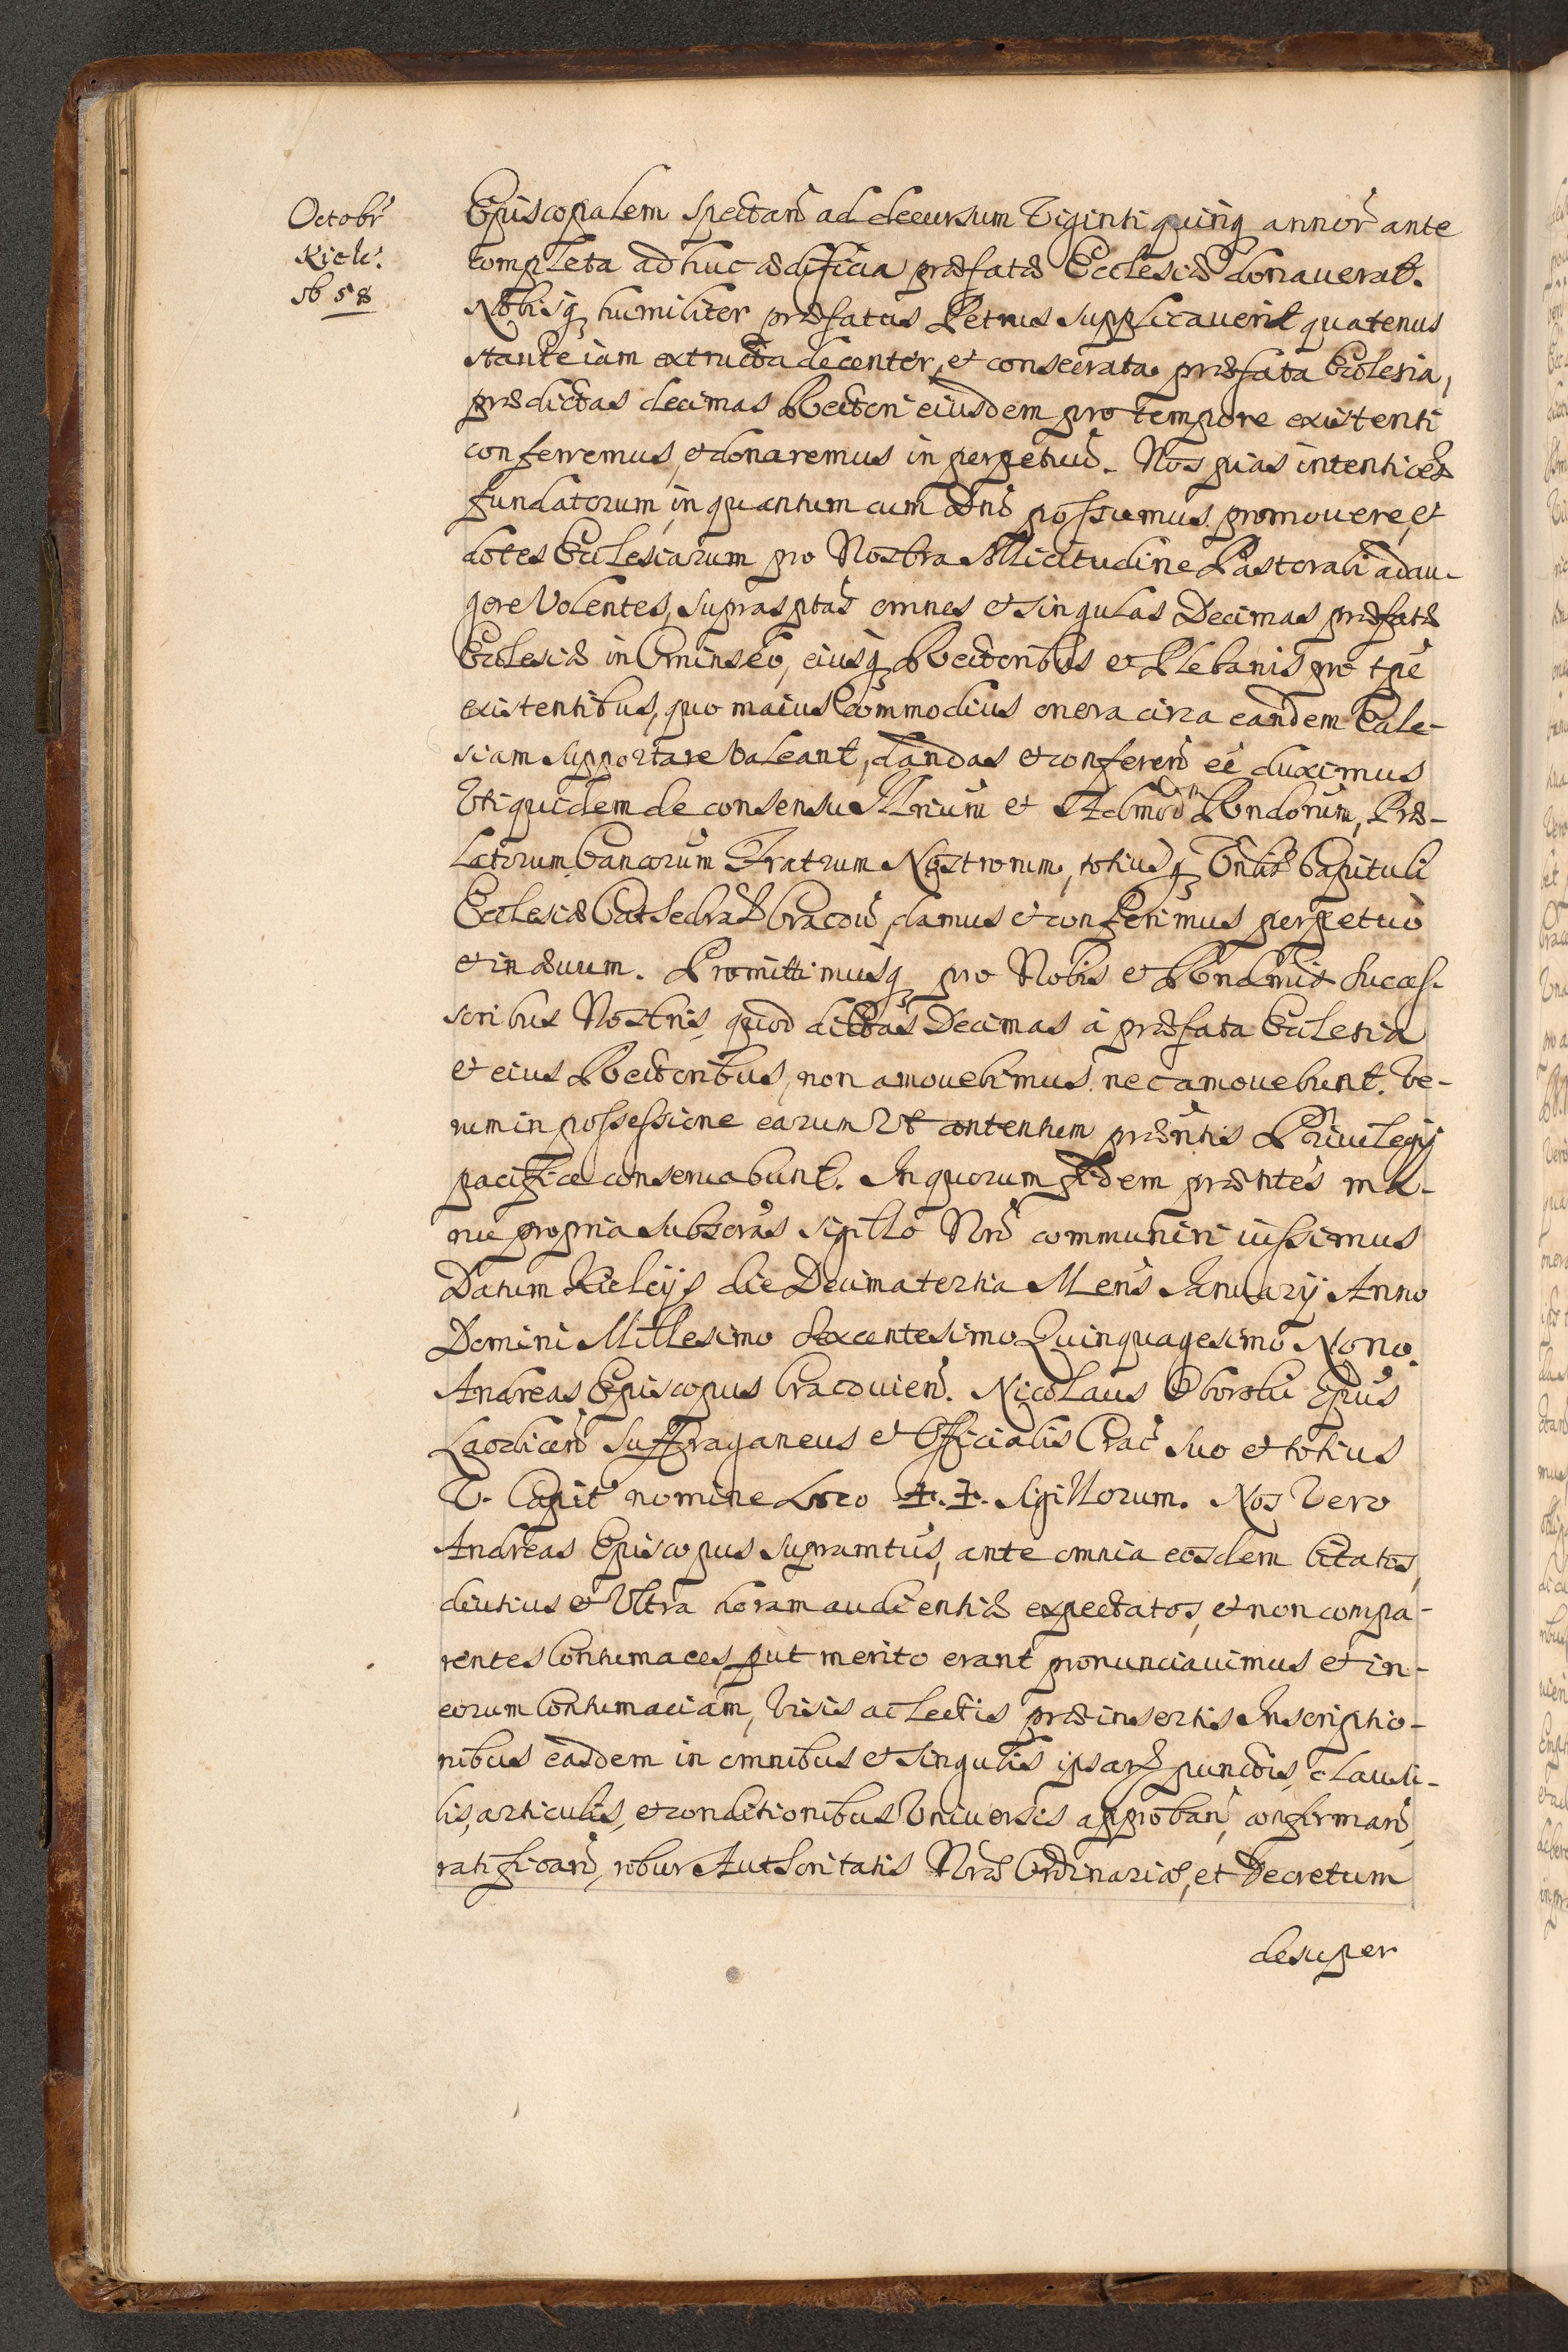 Octobr
Kiele.
Episcopalem spectan̄ ad decursum Viginti quinq annor̄ ante
completa adhuc ædificia præfatæ Ecclesiæ donauerat.
Nobisq humiliter præfatus Petrus supplicauerit quatenus
stante iam extructa decenter, et consecrata præfata Ecclesia,
prædictas decimas Rectori eiusdem pro tempore existenti
conferremus, et donaremus in perpetuū. Nos pias intentiões
fundatorum, in quantum cum Dnō possumus promouere, et
dotes Ecclesiarum pro Nostra Sollicitudine Pastorali adau-
gere Volentes, suprasptas omnes et singulas Decimas præfatæ
Ecclesiæ in Cminseo, eiusq Rectoribus et Plebanis pro tpē
existentibus, quo maius commodius onera circa eandem Eccle-
siam supportare Valeant, dandas et conferen̄ eē duximus
Vti quidem de consensu Illrium et Admod̄ Rndorum, Præ-
latorum Cancorum Fratrum Nostrorum, totiusq Vnlis Capituli
Ecclesiæ Cathedralis Cracouī, damus et conferimus perpetuò
et in æuum. Promittimusq pro Nobis et Rndmis Succes-
soribus Nostris, quod dictas Decimas à præfata Ecclesia
et eius Rectoribus, non amouebimus nec amouebunt. Ve-
rum in possessione earum Vt contentum præntis Priuilegij
pacificè conseruabunt. In quorum fidem præntes ma-
nu propria subscras sigillo Nrō communiri iussimus
Datum Kielcijs die Decima tertia Mens Januarij Anno
Domini Millesimo Sexcentesimo Quinquagesimo Nono.
Andreas Episcopus Cracouien̄. Nicolaus Oborski Epus
Laodicen̄ Suffraganeus et Officialis Crac̄ suo et totius
V. Capit nomine Loco ‡. ‡. Sigillorum. Nos Vero
Andreas Episcopus supramtus, ante omnia eosdem Citatos,
diutius et Vltra horam audientiæ expectatos, et non compa-
rentes Contumaces, put merito erant pronunciauimus et in-
eorum Contumaciam, Visis ac lectis præinsertis Inscriptio-
nibus easdem in omnibus et singulis ipsarz punctis, clausu-
lis, articulis, et conditionibus Vniuersis approban̄, confirman̄,
ratifican̄, robur Authoritatis Nræ Ordinariæ, et Decretum
desuper